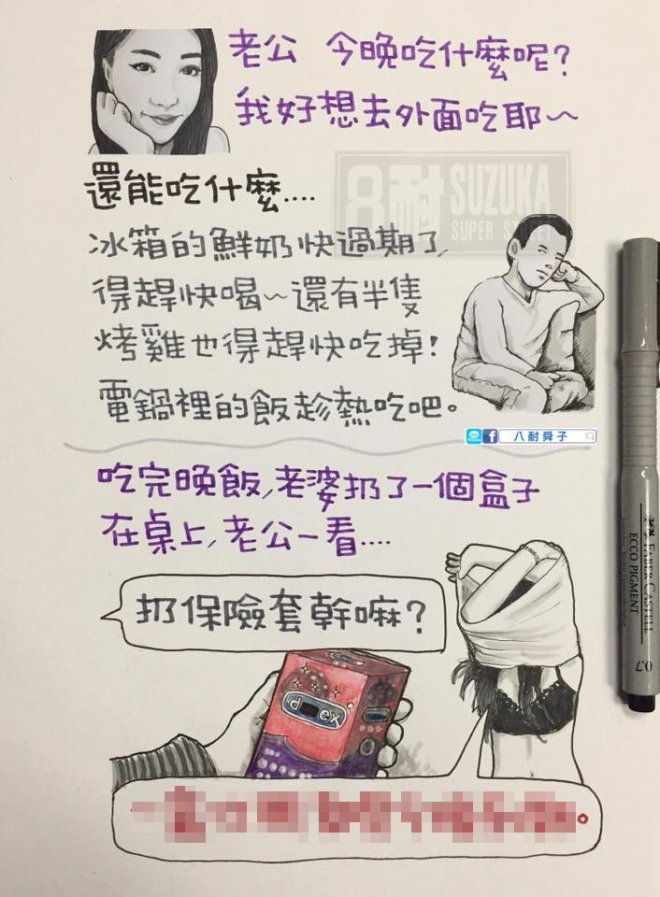 老公 今晚吃什麼呢?
我好想去外面吃耶~
還能吃什麼....
8耐 SUZUKA
SUPER STREET
冰箱的鮮奶快過期了,
得趕快喝~還有半隻
烤雞也得趕快吃掉!
電鍋裡的飯趁熱吃吧。
八耐舜子
吃完晚飯,老婆扔了一個盒子
在桌上,老公一看....
扔保險套幹嘛?
FABER-CASTELL
ECCO PIGMENT
0.7